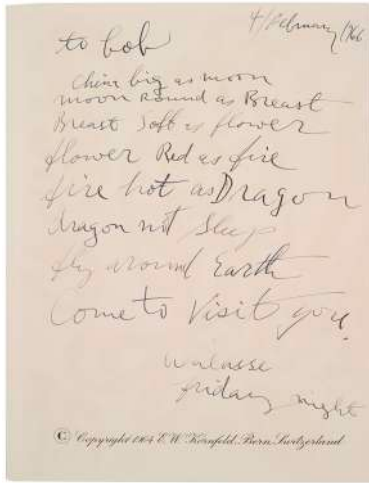 4/February/1966
to bob
China big as moon
moon Round as Breast
Breast Soft as flower
flower Red as fire
fire hot as Dragon
dragon not Sleep
fly around Earth
Come to Visit you.
Walasse
friday night
© Copyright 1964 E. W. Kornfeld, Bern, Switzerland